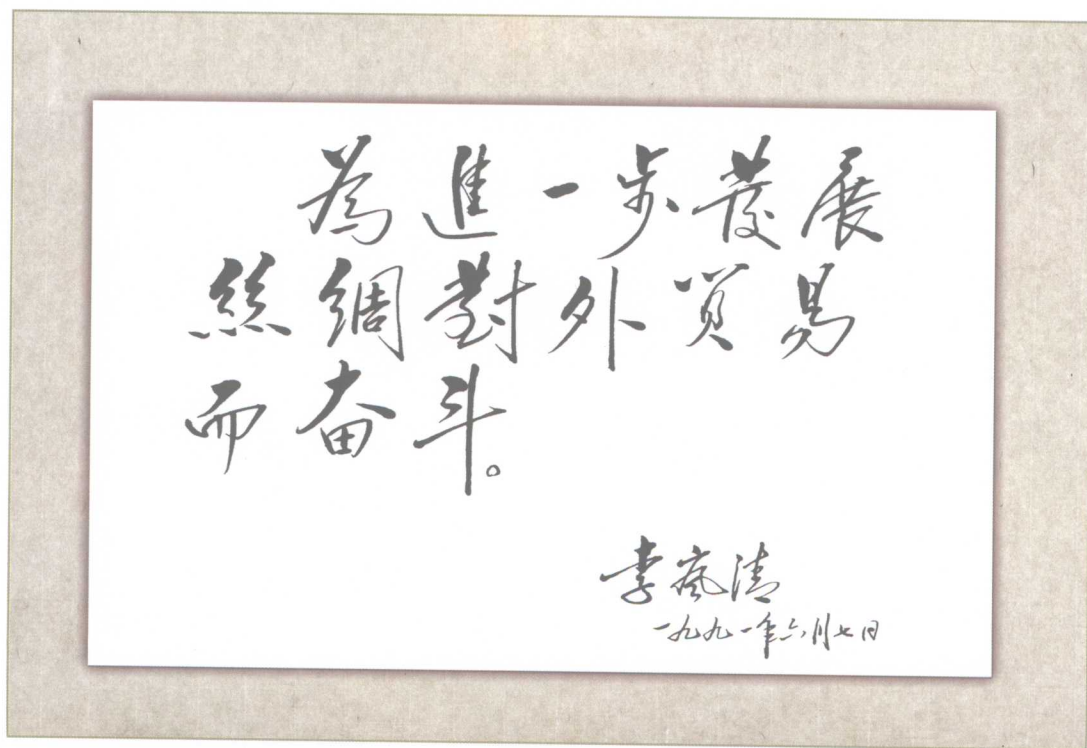 為進一步發展
絲綢對外貿易
而奋斗。
李岚清
一九九一年六月七日